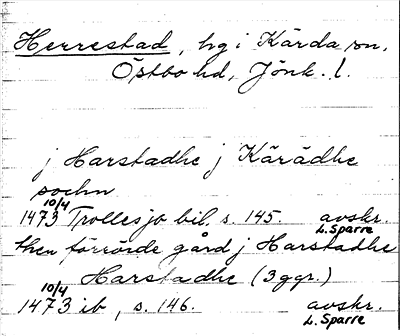 Herrestad, hg i Kärda sn,
Östbo hd, Jönk. l.
j Harstadhe j Kärädhe
sochn
10/4
1473 Trollesjö bil. s. 145. avskr.
L. Sparre
then förrörde gård j Harstadhe
Harstadhe (3 ggr.)
10/4
1473 ib, s. 146. avskr.
L. Sparre